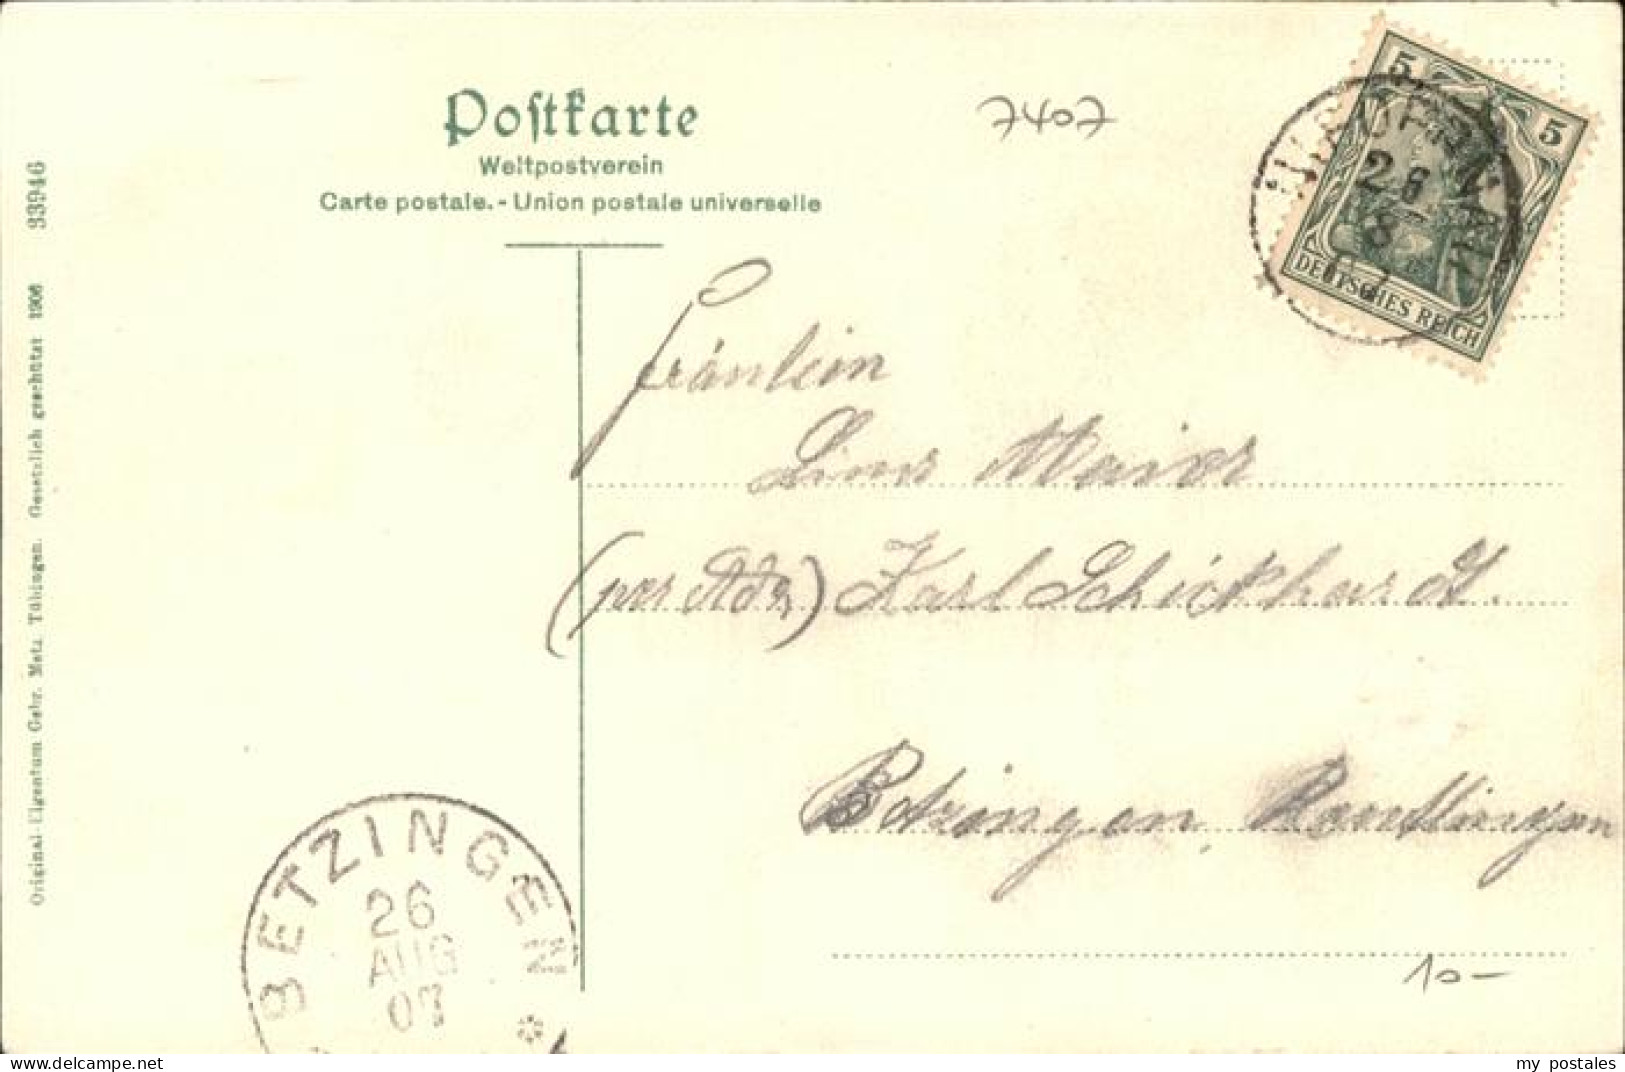 Postkarte
Weltpostverein
Carte postale. - Union postale universelle
7407
5
5
DEUTSCHES REICH
26
8
33946
Original-Eigentum Gebr. Metz Tübingen. Gesetzlich geschützt 1906
Fräulein
Maier
(per Adr.) Karl Schickhardt.
Betzingen, Reutlingen
BETZINGEN
26
AUG
07
10-
www.delcampe.net
my_postales